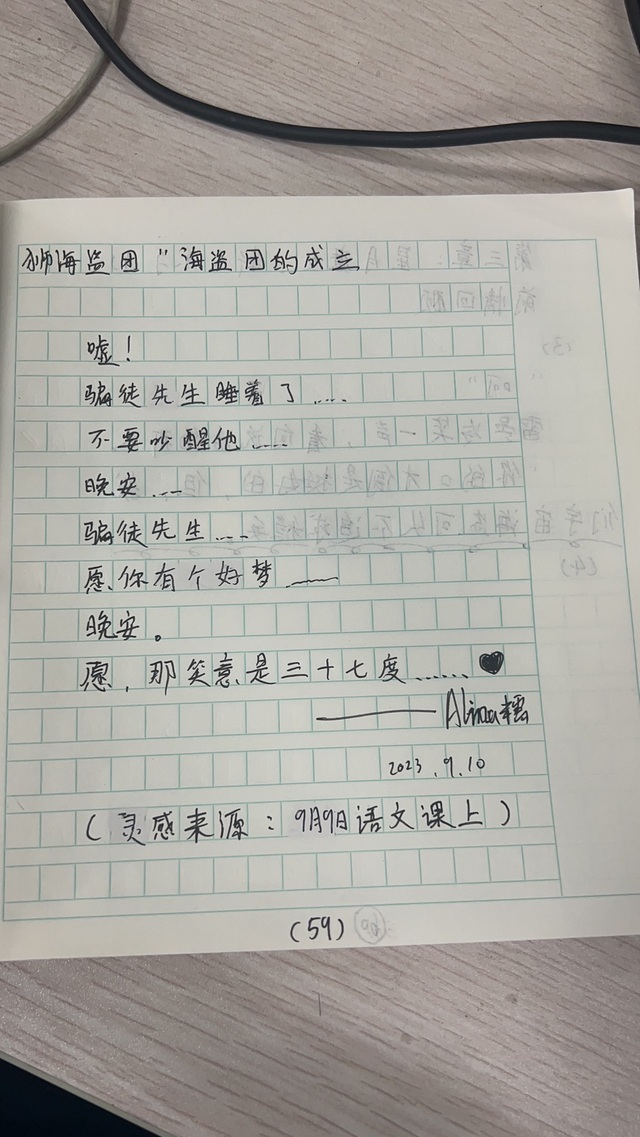 狮海盗团"海盗团的成立
嘘！
骗徒先生睡着了……
不要吵醒他……
晚安……
骗徒先生……
愿，你有个好梦……
晚安。
愿，那笑意是三十七度……♥
——Alina糯
2023.9.10
（灵感来源：9月9日语文课上）
(59)